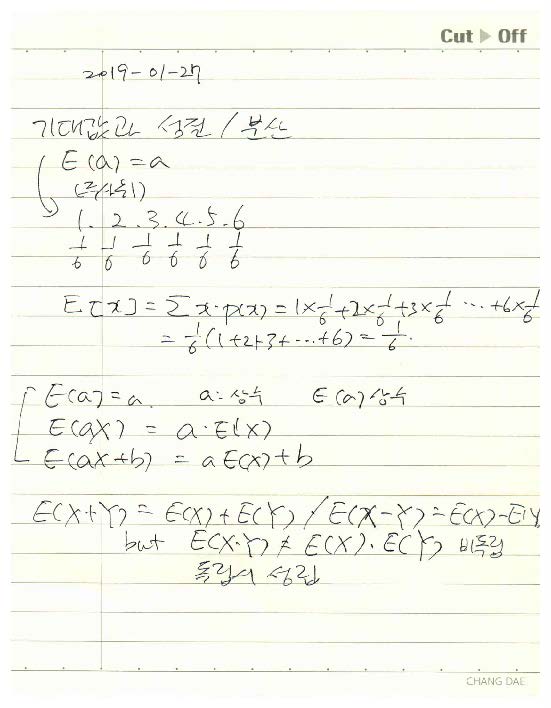 Cut ▶ Off
2019-01-27
기대값과 성질 / 분산
E(a) = a
(주사위)
1. 2. 3. 4. 5. 6
1/6 1/6 1/6 1/6 1/6 1/6
E[x] = Σ x·p(x) = 1×1/6+2×1/6+3×1/6 … +6×1/6
= 1/6(1+2+3+…+6) = 1/6.
E(a) = a. a: 상수 E(a) 상수
E(aX) = a·E(x)
E(aX+b) = aE(x)+b
E(X+Y) = E(X)+E(Y) / E(X-Y) = E(X)-E(Y
but E(X·Y) ≠ E(X)·E(Y) 비독립
독립시 성립
CHANG DAE